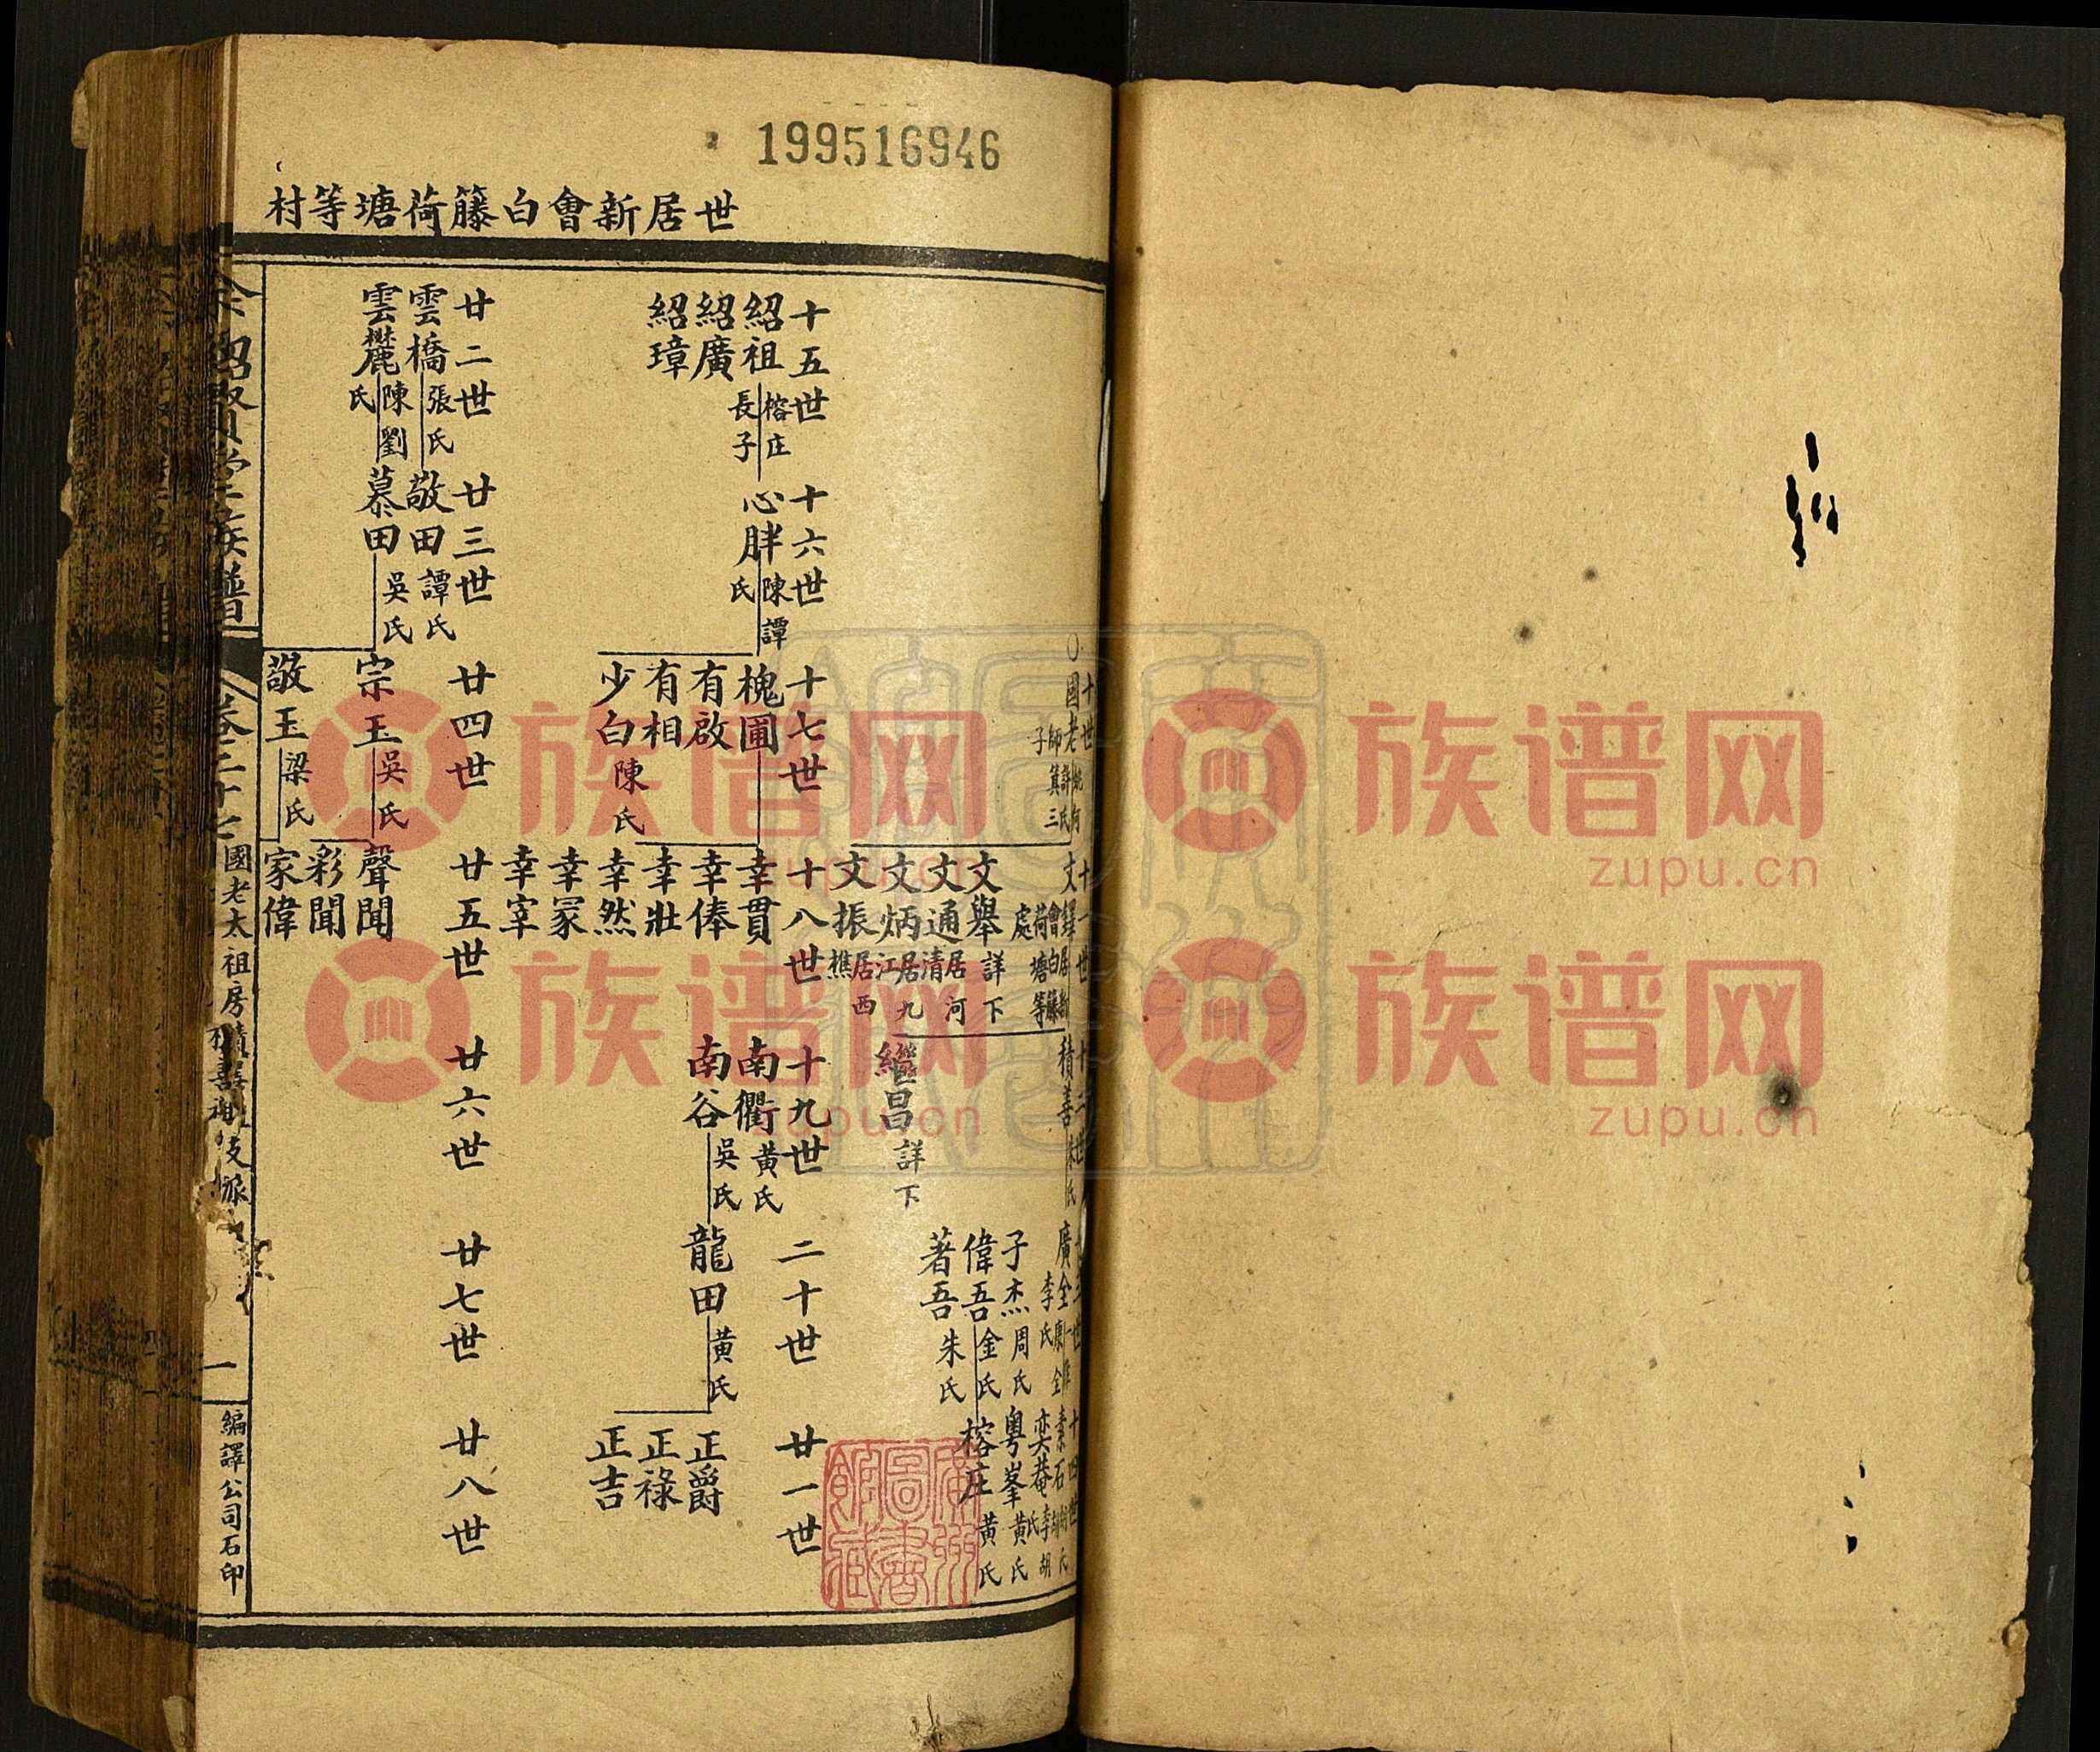 199516946
世居新會白籐荷塘等村
十世
國老
師許氏
子箕三
十一世
居新
會白籐
荷塘等
處
文舉 詳下
文通 居河清
文炳 居九江
文振 居西樵
十二世
積善
繼昌 詳下
廣全
李氏
子杰 周氏
偉吾 金氏
著吾 朱氏
素石
奕菴 李胡氏
粵峯 黃氏
榕庄 黃氏
十五世
紹祖 榕庄長子
紹廣
紹璋
十六世
心胖 陳譚氏
十七世
槐圃
有啟
有相
少白 陳氏
十八世
幸貫
幸俸
幸壯
幸然
幸冡
幸宰
十九世
南衢 黃氏
南谷 吳氏
二十世
龍田 黃氏
廿一世
正爵
正祿
正吉
廿二世
雲橋 張氏
雲麓 陳劉氏
廿三世
敬田 譚氏
慕田 吳氏
廿四世
宗玉 吳氏
敬玉 梁氏
廿五世
聲聞
彩聞
家偉
廿六世
廿七世
廿八世
余紹賢堂族譜
卷三十七
國老太祖房積善祖支派
一
編譯公司石印
廣州圖書館藏
族谱网
zupu.cn
族谱网
zupu.cn
族谱网
zupu.cn
族谱网
zupu.cn